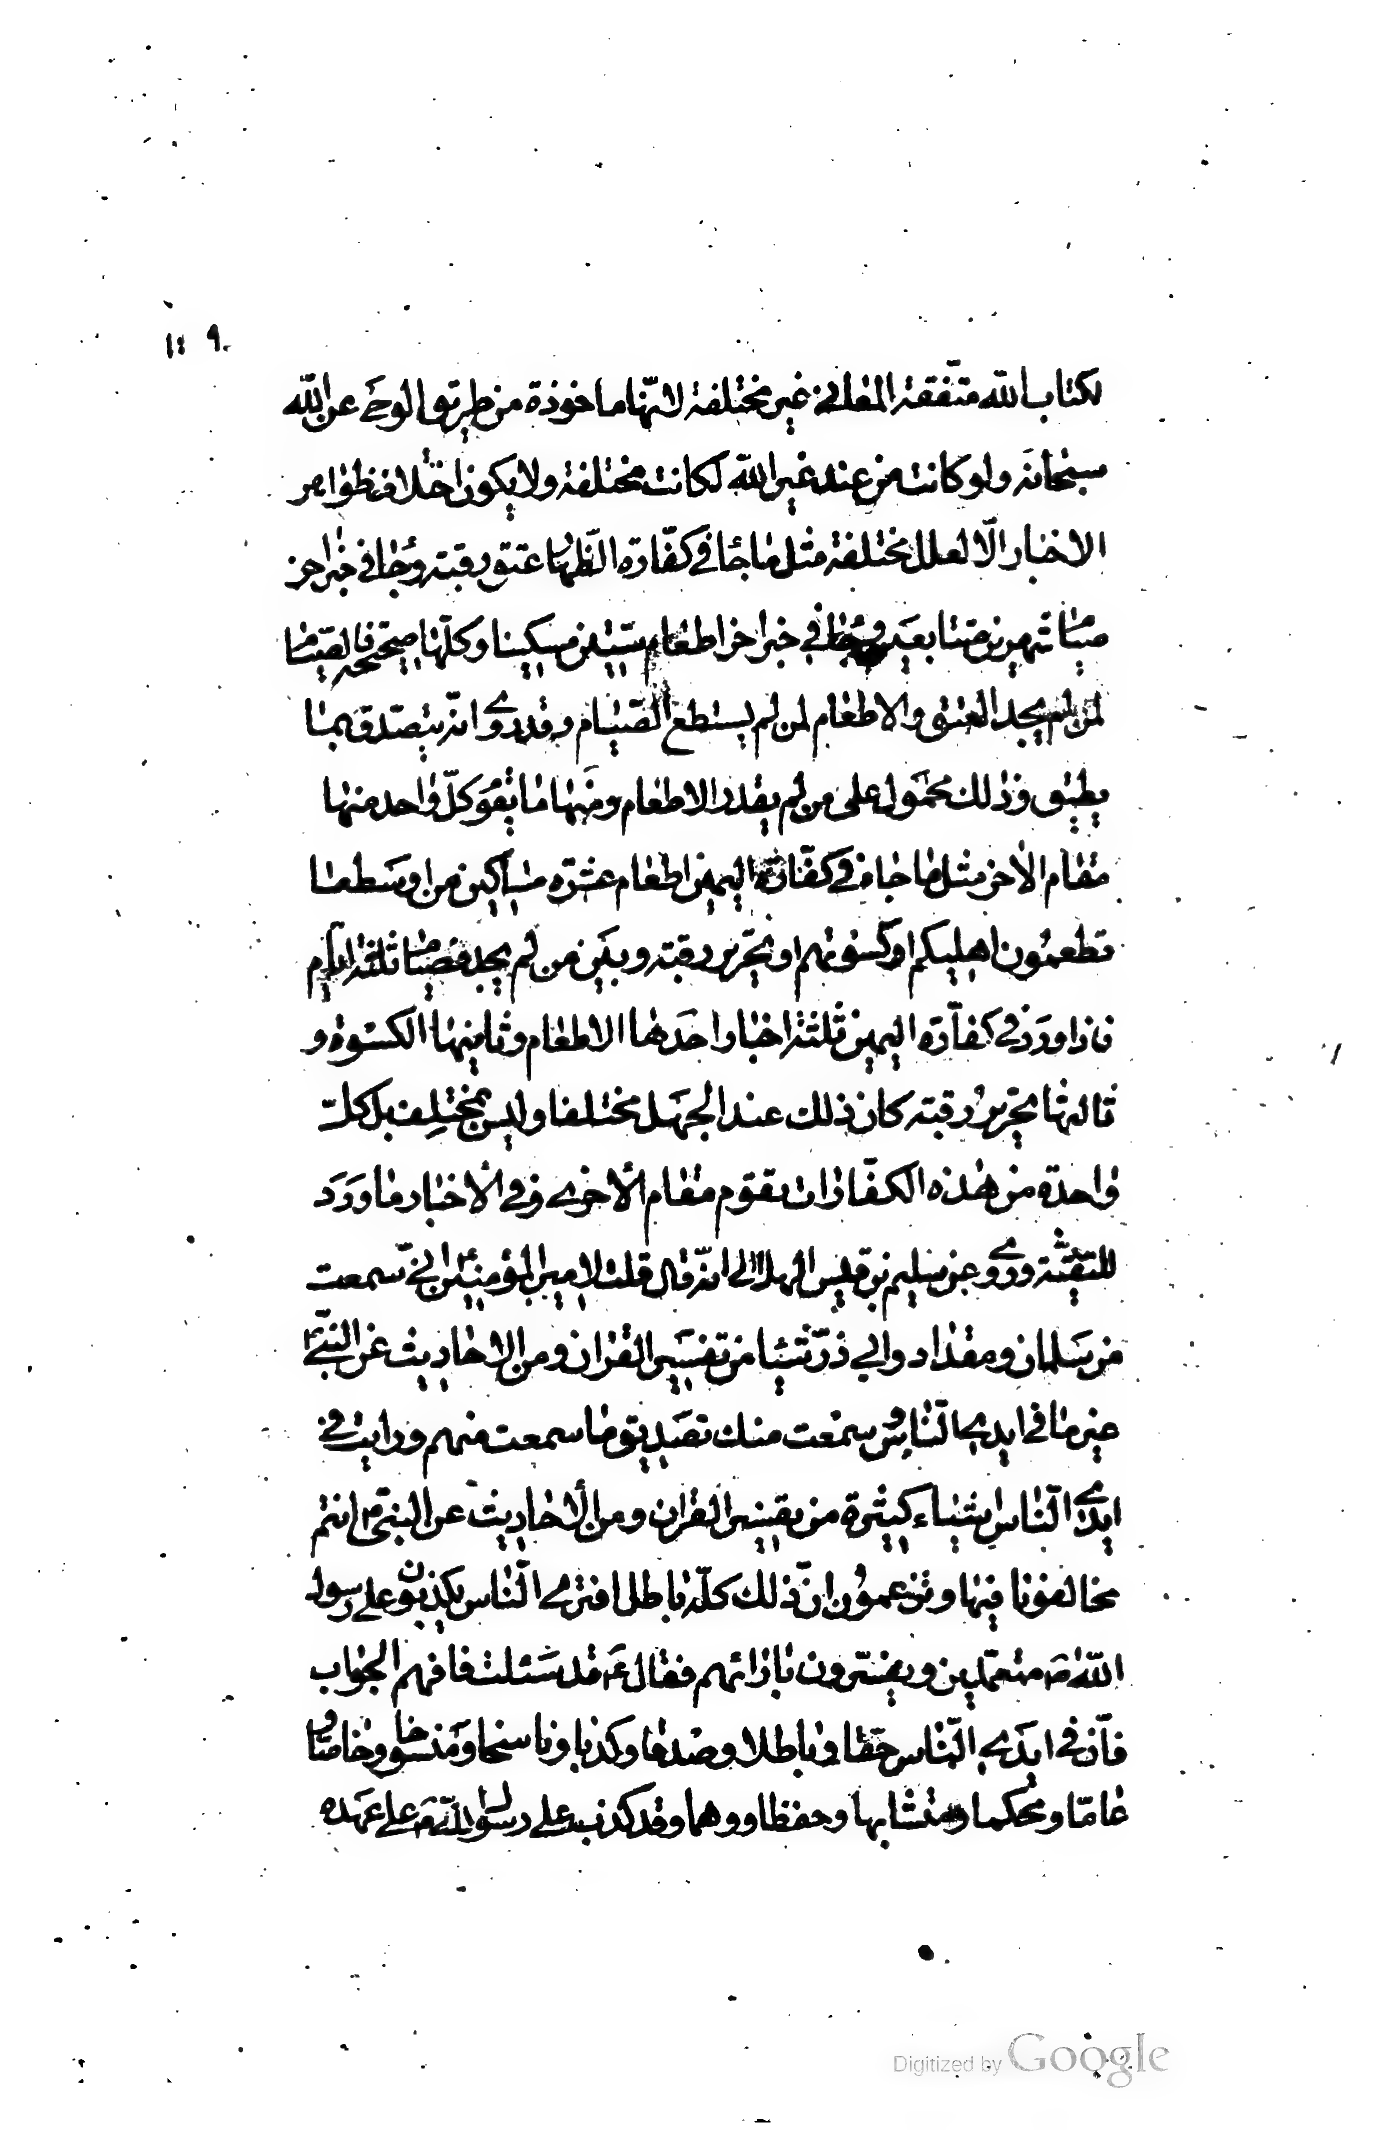 ۹
لكتاب الله متّفقة المعاني غير مختلفة لانّها ماخوذة من طريق الوحي عن الله
سبحانه ولو كانت من عند غير الله لكانت مختلفة ولا يكون اختلاف ظواهر
الاخبار الّا لعلل مختلفة مثل ما جاء في كفّارة الظّهار عتق رقبة وجاء في خبر اخر
صيام شهرين متتابعين وجاء في خبر اخر اطعام ستّين مسكينا وكلّها صحيحة فالصّيام
لمن لم يجد العتق والاطعام لمن لم يستطع الصّيام وقد روي انّه يتصدّق بما
يطيق وذلك محمول على من لم يقدر الاطعام ومنها ما يقوم كلّ واحد منها
مقام الاخر مثل ما جاء في كفّارة اليمين اطعام عشرة مساكين من اوسط ما
تطعمون اهليكم او كسوتهم او تحرير رقبة وبين من لم يجد فصيام ثلثة ايام
فاذا ورد في كفّارة اليمين ثلثة اخبار احدها الاطعام وثانيها الكسوة و
ثالثها تحرير رقبة كان ذلك عند الجهل مختلفا وليس بمختلف بل كلّ
واحدة من هذه الكفّارات تقوم مقام الأخرى وفي الأخبار ما ورد
للتقيّة وروي عن سليم بن قيس الهلالي انّه قال قلت لامير المؤمنين انّي سمعت
من سلمان ومقداد وابي ذرّ شيئا من تفسير القران ومن الاحاديث عن النبيّ
غير ما في ايدي النّاس وسمعت منك تصديق ما سمعت منهم ورايت في
ايدي النّاس اشياء كثيرة من تفسير القران ومن الأحاديث عن النبيّ انتم
تخالفونا فيها وتزعمون انّ ذلك كلّه باطل افترى النّاس يكذبون على رسول
اللّه ص متعمّدين ويفسّرون بارائهم فقال ع قد سئلت فافهم الجواب
فانّ في ايدي النّاس حقّا وباطلا وصدقا وكذبا وناسخا ومنسوخا وخاصّا و
عامّا ومحكما ومتشابها وحفظا ووهما وقد كذب على رسول اللّه ص على عهده
Digitized by Google